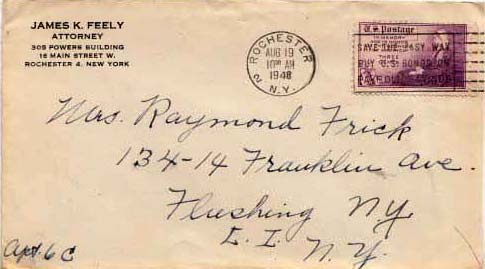 JAMES K. FEELY
ATTORNEY
305 POWERS BUILDING
16 MAIN STREET W.
ROCHESTER 4. NEW YORK
ROCHESTER
2
AUG 19
1948
N.Y.
U.S. Postage
SAVE THE EASY WAY
BUY U.S. BONDS
Mrs. Raymond Frick
134-14 Franklin Ave.
Flushing N.Y.
L. I. N.Y.
Apt. 6C